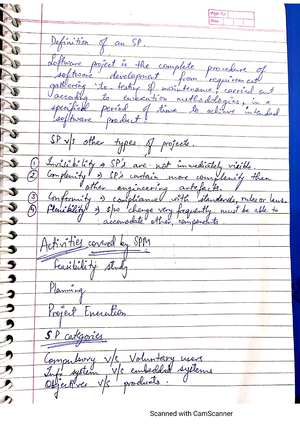 Page No.:
Date:
Definition of an SP.
Software project is the complete procedure of
software development from requirement
gathering to testing & maintenance, carried out
according to execution methodologies, in a
specified period of time to achieve intended
software product.
SP v/s other types of projects.
① Invisibility → SP's are not immediately visible
② Complexity → SP's contain more complexity than
other engineering artefacts.
③ Conformity → compliance with standards, rules or laws.
④ Flexibility → s/w change very frequently must be able to
accomodate other components
Activities covered by SPM
Feasibility study
Planning
Project Execution
SP categories.
Compulsory v/s Voluntary users
Info system v/s embedded systems
Objectives v/s products.
Scanned with CamScanner